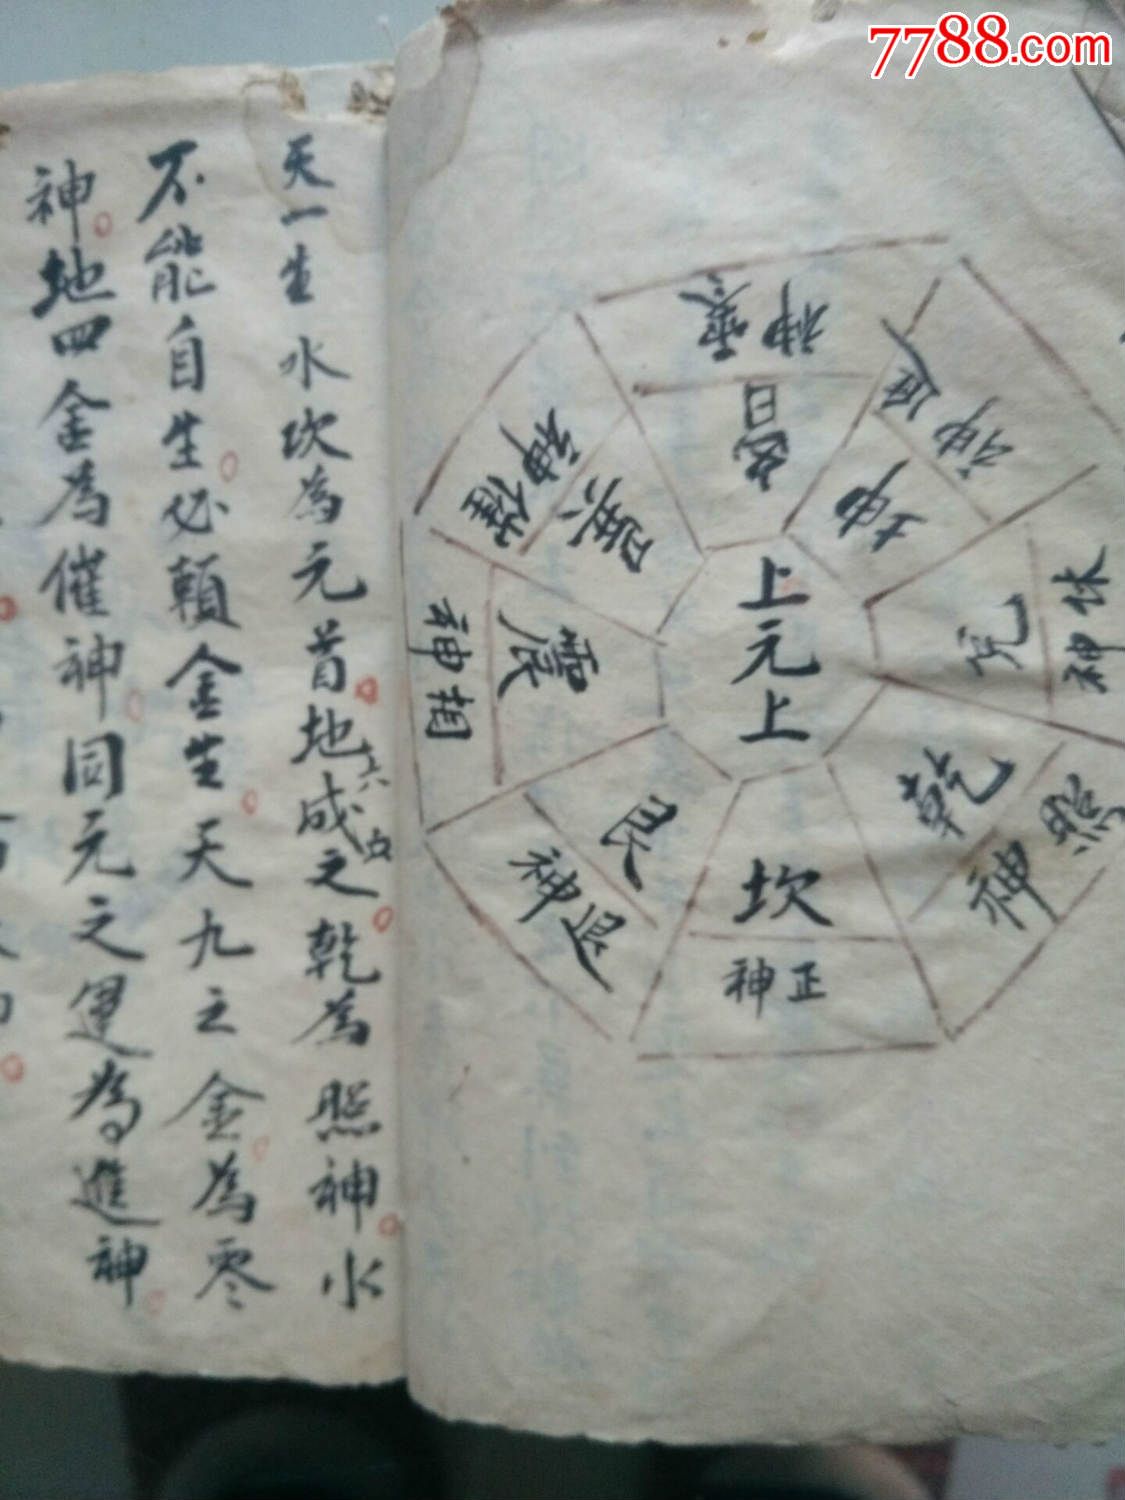 7788.com
上元上
零神
離
進神
坤
休神
兌
照神
乾
正神
坎
退神
艮
相神
震
催神
巽
天一生水坎為元首地六成之乾為照神水
不能自生必賴金生天九之金為零
神地四金為催神同元之運為進神